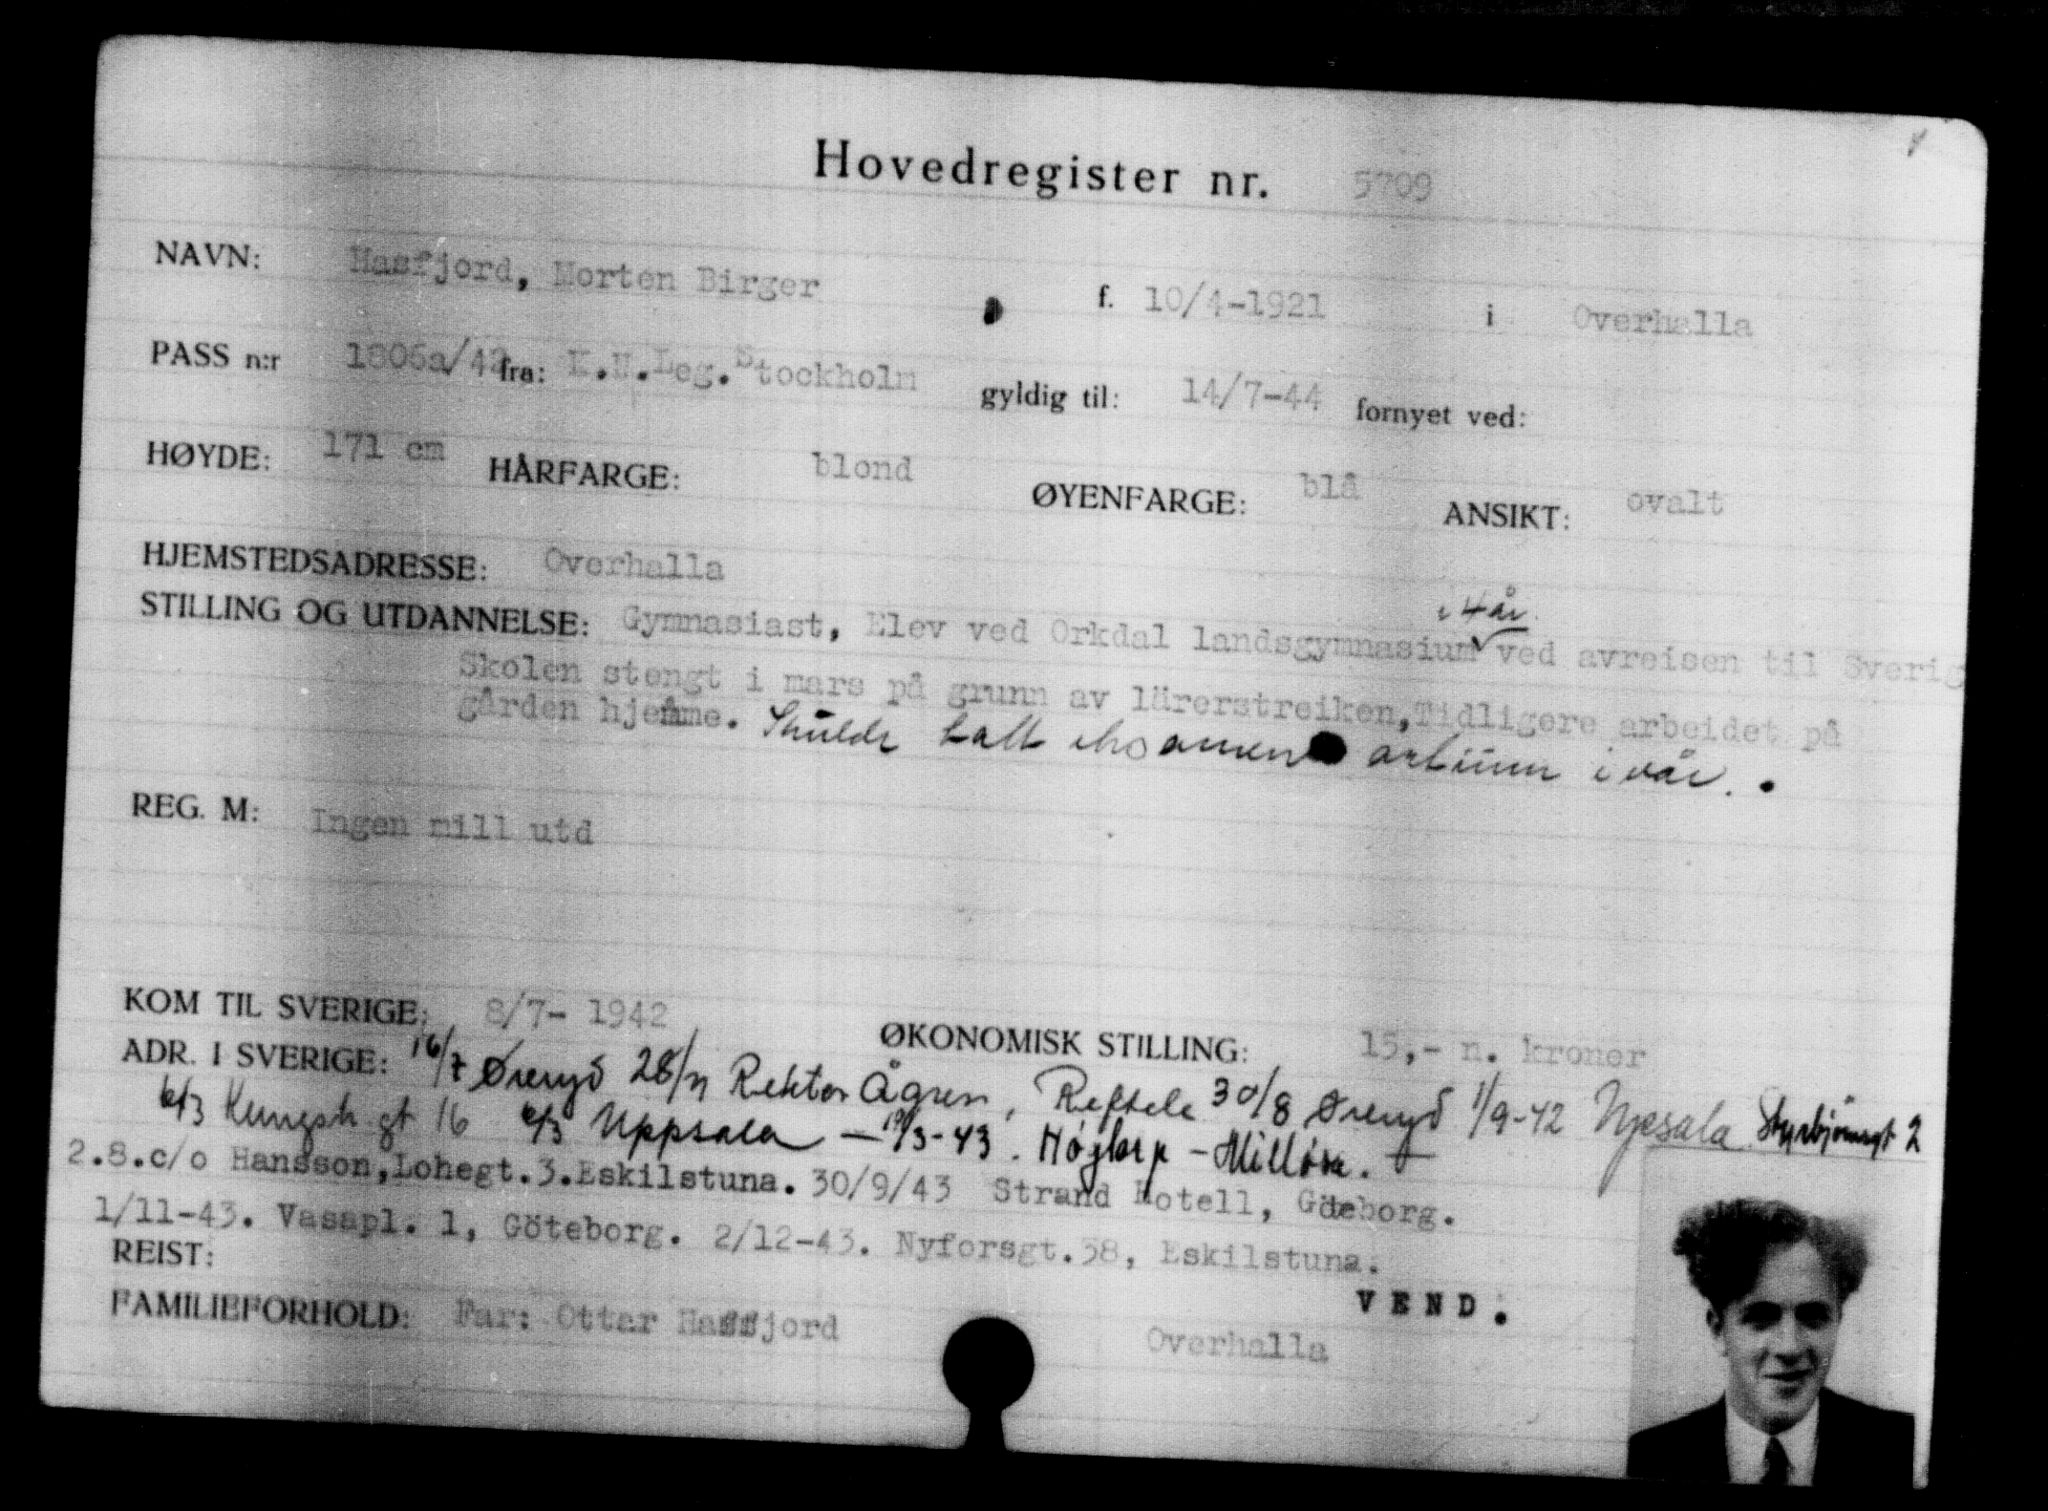 Hovedregister nr. 5709
NAVN: Hasfjord, Morten Birger f. 10/4-1921 i Overhalla
PASS n:r 1806a/42 fra: K.N.Leg.Stockholm gyldig til: 14/7-44 fornyet ved:
HØYDE: 171 cm HÅRFARGE: blond ØYENFARGE: blå ANSIKT: ovalt
HJEMSTEDSADRESSE: Overhalla
i 4 år
STILLING OG UTDANNELSE: Gymnasiast, Elev ved Orkdal landsgymnasium ved avreisen til Sverig
Skolen stengt i mars på grunn av lärerstreiken, Tidligere arbeidet på
gården hjemme. Skulde tatt eksamen artium i vår.
REG. M: Ingen mill utd
KOM TIL SVERIGE: 8/7- 1942 ØKONOMISK STILLING: 15,- n. kroner
ADR. I SVERIGE: 16/7 Øreryd 28/7 Rektor Ågren, Reftele 30/8 Øreryd 1/9-42 Uppsala Styrbjörnsgt 2
6/3 Kungsh gt 16 6/3 Uppsala — 19/3-43. Högtorp -
2.8.c/o Hansson,Lohegt.3.Eskilstuna. 30/9/43 Strand Hotell, Göteborg.
1/11-43. Vasapl. 1, Göteborg. 2/12-43. Nyforsgt.38, Eskilstuna.
REIST:
VEND.
FAMILIEFORHOLD: Far: Ottar Hasfjord Overhalla